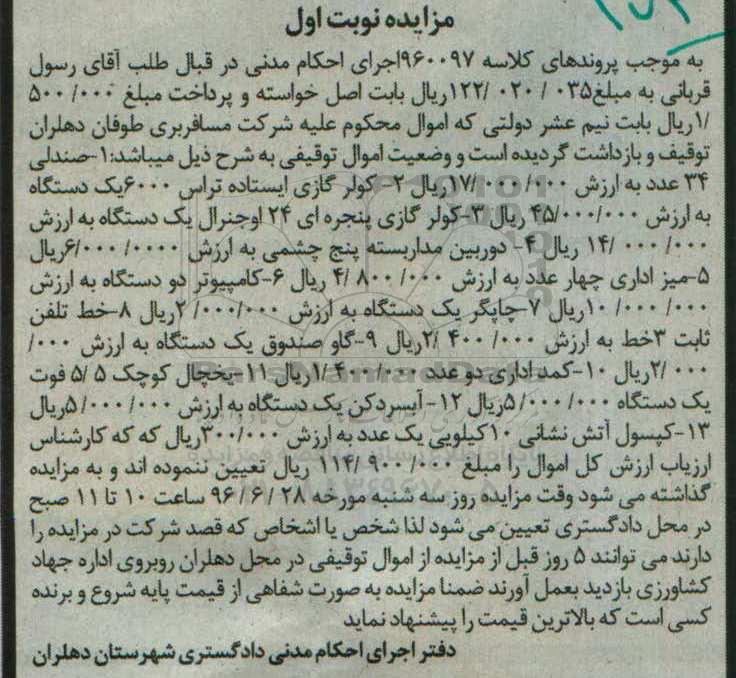 مزایده نوبت اول
به موجب پروندهای کلاسه ۹۶۰۰۹۷اجرای احکام مدنی در قبال طلب آقای رسول
قربانی به مبلغ۰۳۵ / ۰۲۰ /۱۲۲ریال بابت اصل خواسته و پرداخت مبلغ ۰۰۰/ ۵۰۰
/۱ریال بابت نیم عشر دولتی که اموال محکوم علیه شرکت مسافربری طوفان دهلران
توقیف و بازداشت گردیده است و وضعیت اموال توقیفی به شرح ذیل میباشد:۱-صندلی
۳۴ عدد به ارزش ۰۰۰/ ۰۰۰ /۱۷ریال ۲- کولر گازی ایستاده تراس ۶۰۰۰یک دستگاه
به ارزش ۰۰۰/ ۰۰۰/ ۴۵ ریال ۳-کولر گازی پنجره ای ۲۴ اوجنرال یک دستگاه به ارزش
۰۰۰/ ۰۰۰ /۱۴ ریال ۴- دوربین مداربسته پنج چشمی به ارزش ۰۰۰۰/ ۰۰۰/ ۶ریال
۵-میز اداری چهار عدد به ارزش ۰۰۰/ ۸۰۰ /۴ ریال ۶-کامپیوتر دو دستگاه به ارزش
۰۰۰/ ۰۰۰/ ۱۰ریال ۷-چاپگر یک دستگاه به ارزش ۰۰۰/ ۰۰۰/ ۲ریال ۸-خط تلفن
ثابت ۳خط به ارزش ۰۰۰/ ۴۰۰ /۲ریال ۹-گاو صندوق یک دستگاه به ارزش ۰۰۰/
۰۰۰ /۲ریال ۱۰-کمد اداری دو عدد ۰۰۰/ ۴۰۰/ ۱ریال ۱۱-یخچال کوچک ۵ /۵ فوت
یک دستگاه ۰۰۰/ ۰۰۰/ ۵ریال ۱۲- آبسردکن یک دستگاه به ارزش ۰۰۰/ ۰۰۰/ ۵ریال
۱۳-کپسول آتش نشانی ۱۰کیلویی یک عدد به ارزش ۰۰۰/ ۳۰۰ریال که که کارشناس
ارزیاب ارزش کل اموال را مبلغ ۰۰۰/ ۹۰۰ /۱۱۴ ریال تعیین ننموده اند و به مزایده
گذاشته می شود وقت مزایده روز سه شنبه مورخه ۲۸ /۶ /۹۶ ساعت ۱۰ تا ۱۱ صبح
در محل دادگستری تعیین می شود لذا شخص یا اشخاص که قصد شرکت در مزایده را
دارند می توانند ۵ روز قبل از مزایده از اموال توقیفی در محل دهلران روبروی اداره جهاد
کشاورزی بازدید بعمل آورند ضمنا مزایده به صورت شفاهی از قیمت پایه شروع و برنده
کسی است که بالاترین قیمت را پیشنهاد نماید
دفتر اجرای احکام مدنی دادگستری شهرستان دهلران